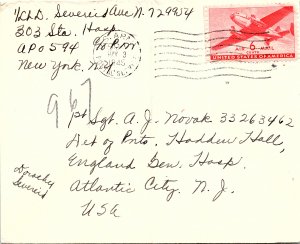 Lt D. Severied Anc N-729954
303 Sta. Hosp
APO 594 % P.M
New York N.Y.
AIR MAIL
6 CENTS
UNITED STATES OF AMERICA
967
Sgt. A. J. Novak 33263462
Det of Pnts. Haddon Hall,
England Gen. Hosp.
Atlantic City N. J.
USA
Dorothy
Severied